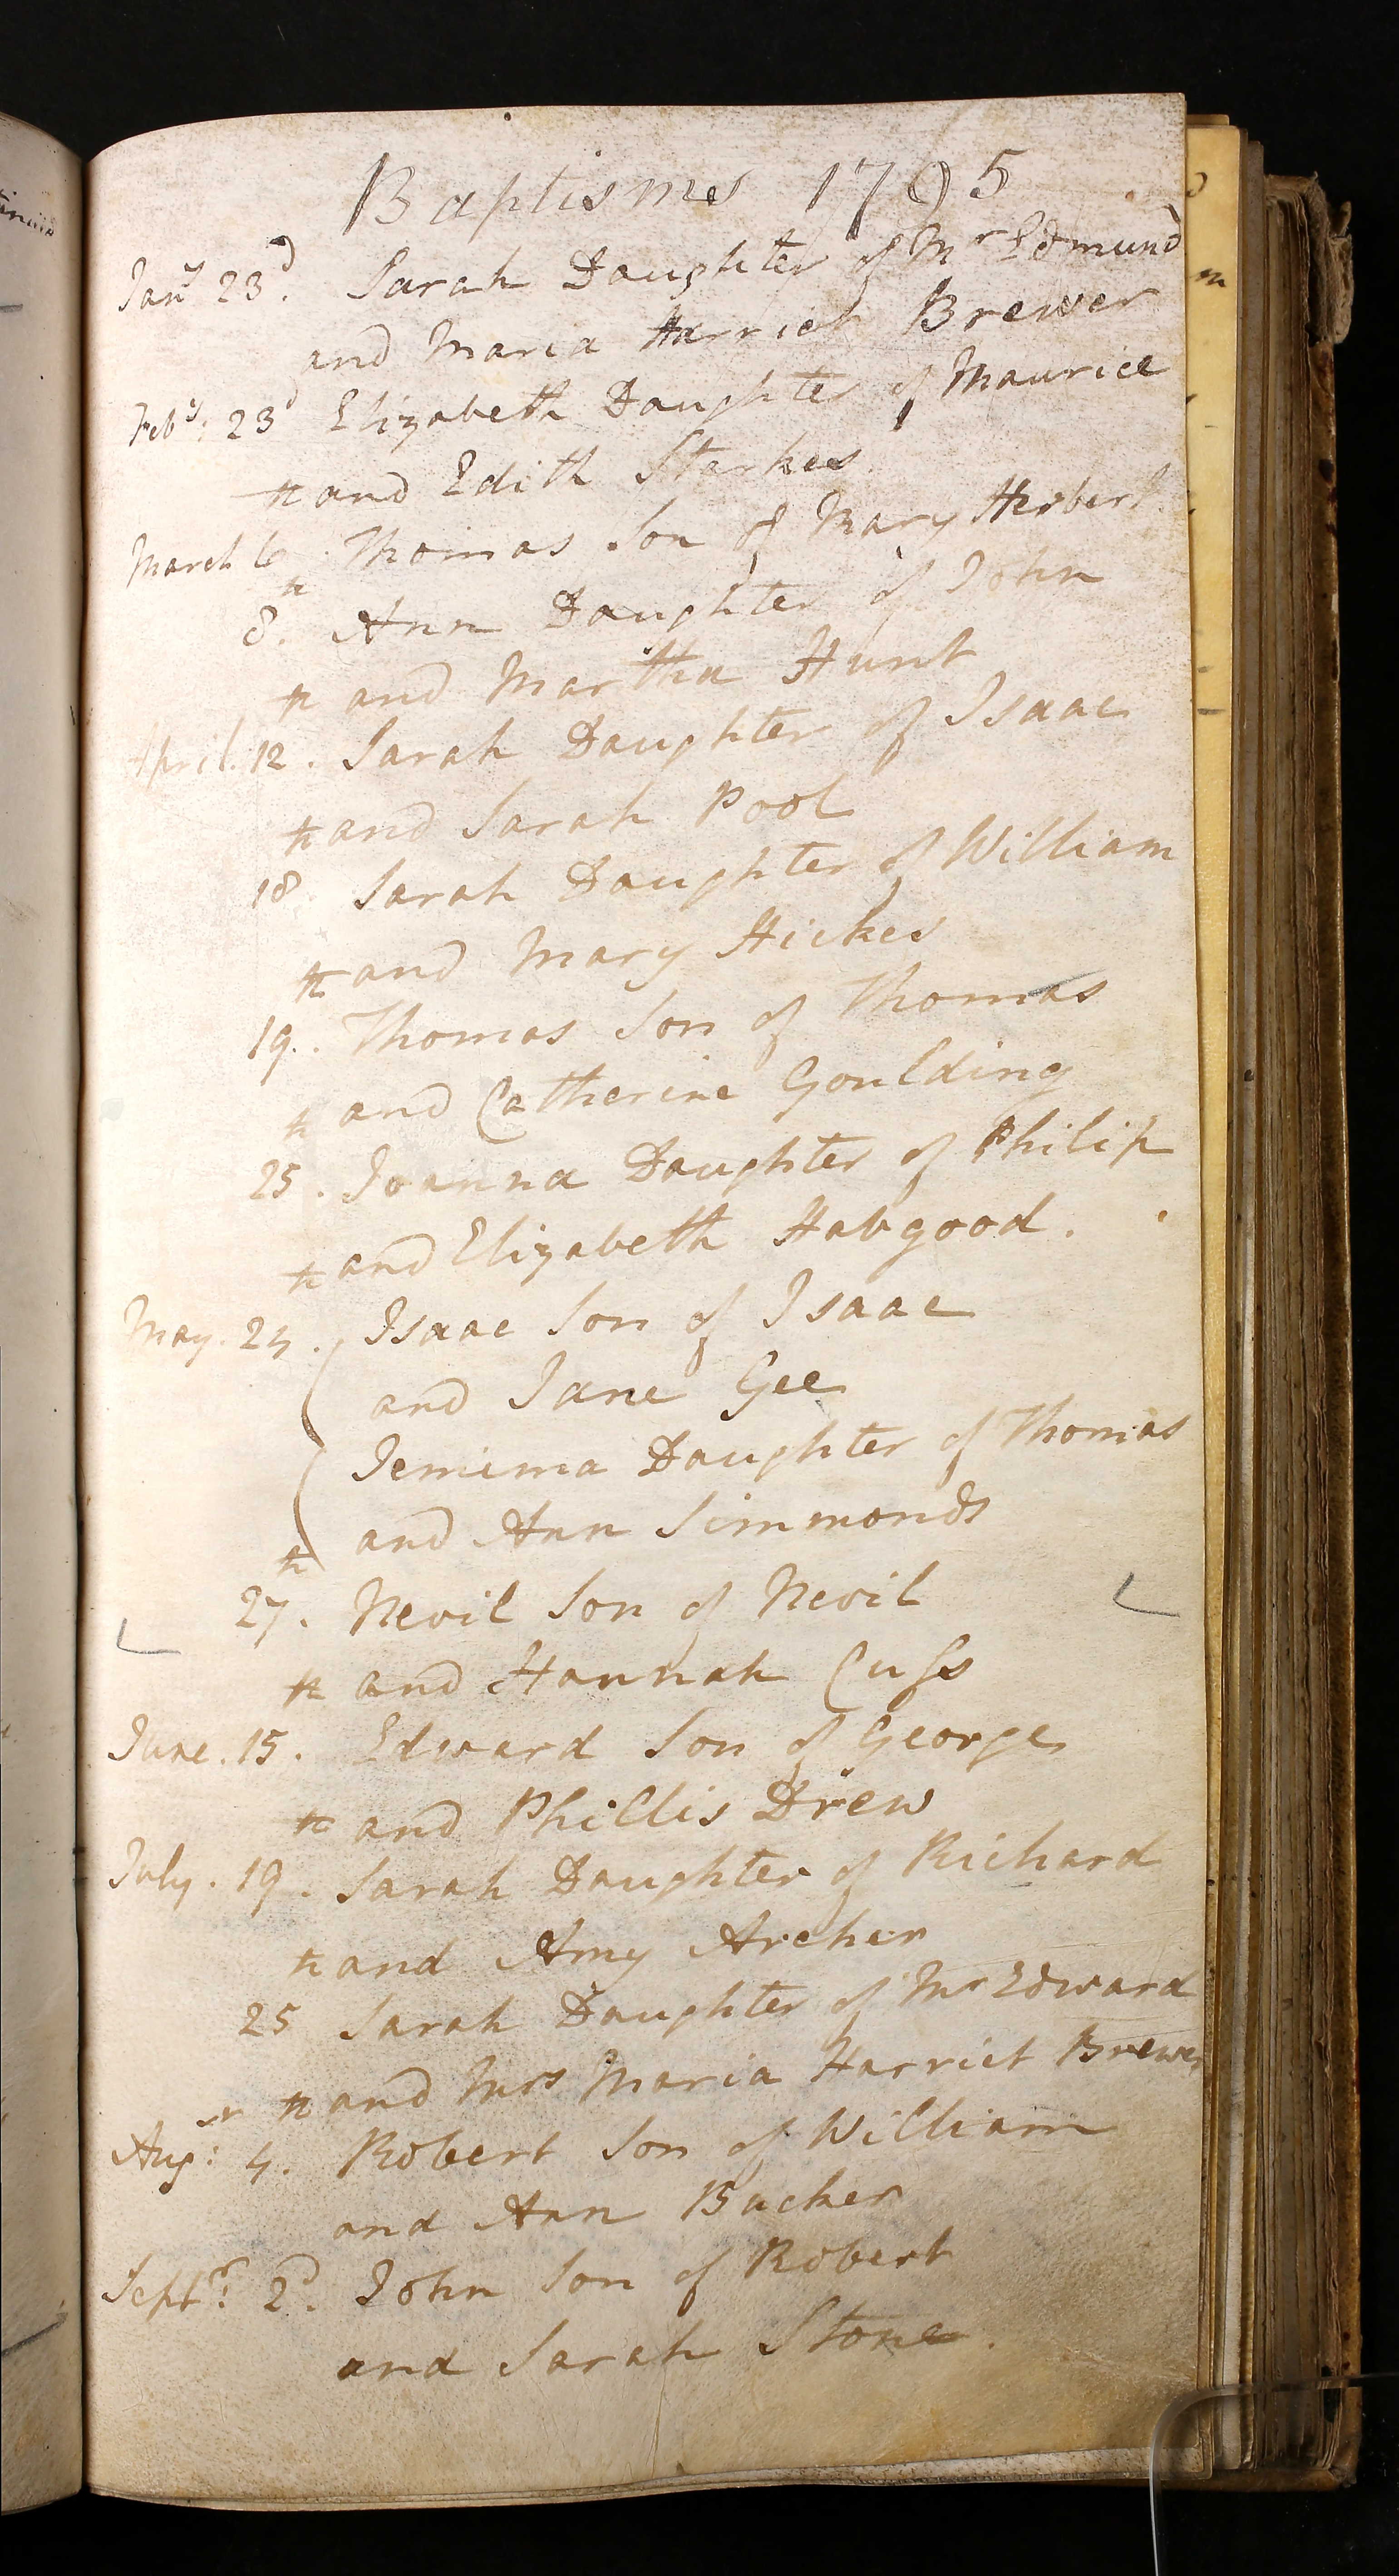 Baptisms 1795
Jany 23d. Sarah Daughter of Mr Edmund
and Maria Harriet Brewer
Feby: 23d Elizabeth Daughter of Maurice
and Edith Starkes
March 6 Thomas Son of Mary Herbert
8. Ann Daughter of John
and Martha Hunt
April. 12. Sarah Daughter of Isaac
and Sarah Pool
18. Sarah Daughter of William
and Mary Hickes
19. Thomas Son of Thomas
and Catherine Goulding
25. Joanna Daughter of Philip
and Elizabeth Habgood.
May. 24. Isaac Son of Isaac
and Jane Gee
Jemima Daughter of Thomas
and Ann Simmonds
27. Nevil Son of Nevil
and Hannah Cuſs
June. 15. Edward Son of George
and Phillis Drew
July. 19. Sarah Daughter of Richard
and Amy Archer
25 Sarah Daughter of Mr Edward
and Mrs Maria Harriet Brewer
Augst: 4. Robert Son of William
and Ann Backer
Septr: 2d. John Son of Robert
and Sarah Stone.